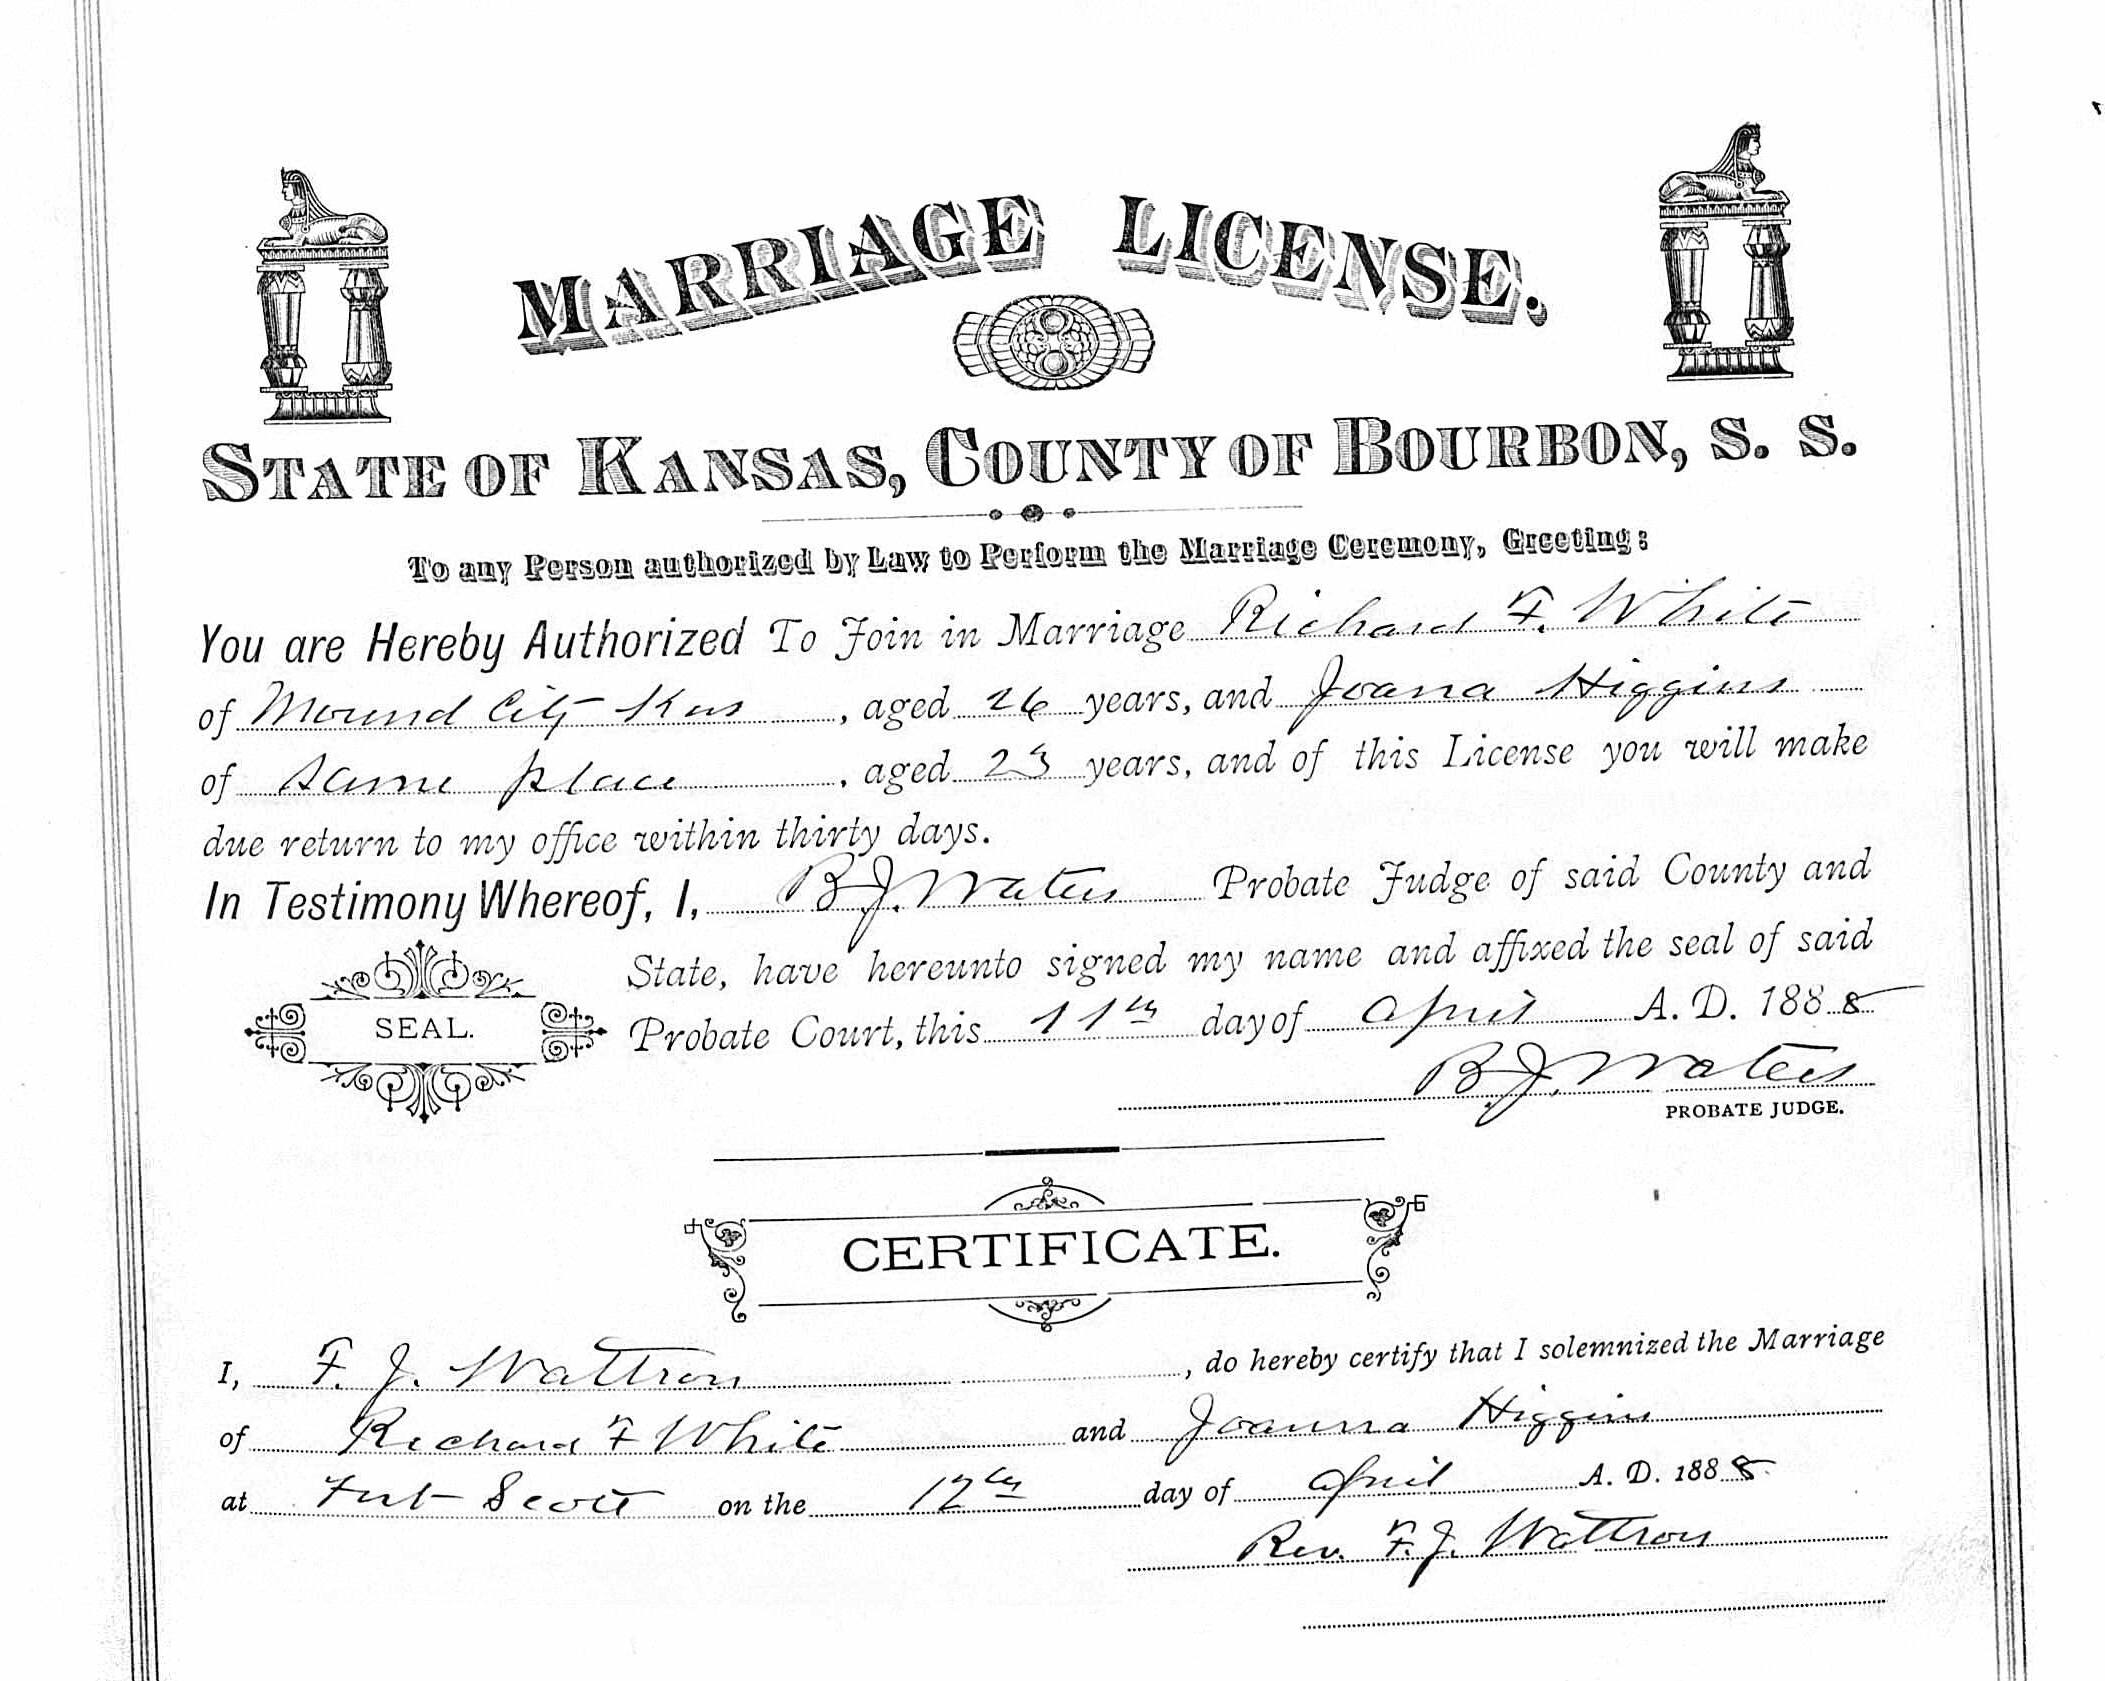 MARRIAGE LICENSE.
STATE OF KANSAS, COUNTY OF BOURBON, S. S.
To any Person authorized by Law to Perform the Marriage Ceremony, Greeting:
You are Hereby Authorized To Join in Marriage Richard F. White
of Mound City Kas, aged 26 years, and Joana Higgins
of same place, aged 23 years, and of this License you will make
due return to my office within thirty days.
In Testimony Whereof, I, B. J. Waters Probate Judge of said County and
State, have hereunto signed my name and affixed the seal of said
SEAL.
Probate Court, this 11th day of April A. D. 1888
B. J. Waters
PROBATE JUDGE.
CERTIFICATE.
I, F. J. Wattron, do hereby certify that I solemnized the Marriage
of Richard F White and Joanna Higgins
at Fort Scott on the 12th day of April A. D. 1888
Rev. F. J. Wattron